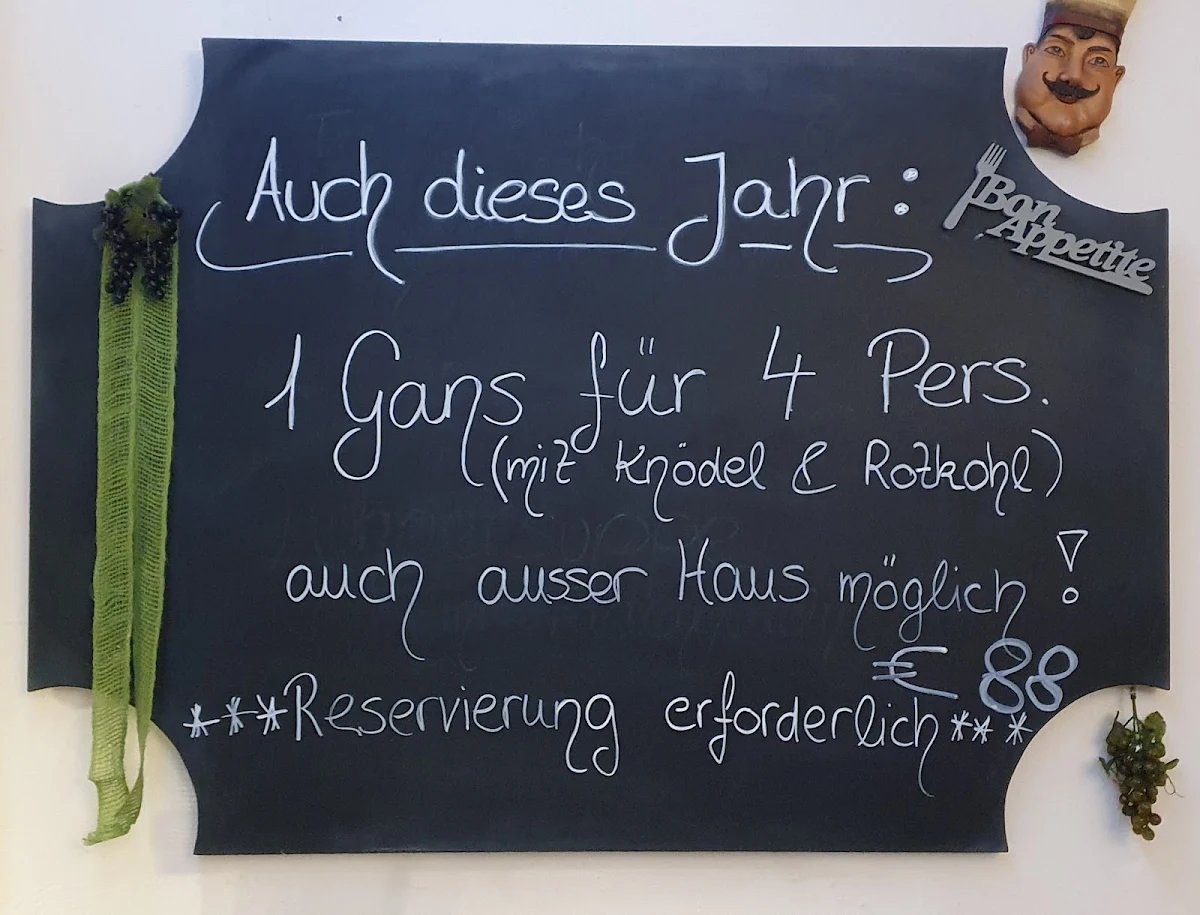 Auch dieses Jahr:
Bon
Appetite
1 Gans für 4 Pers.
(mit Knödel & Rotkohl)
auch ausser Haus möglich!
€ 88
***Reservierung erforderlich***